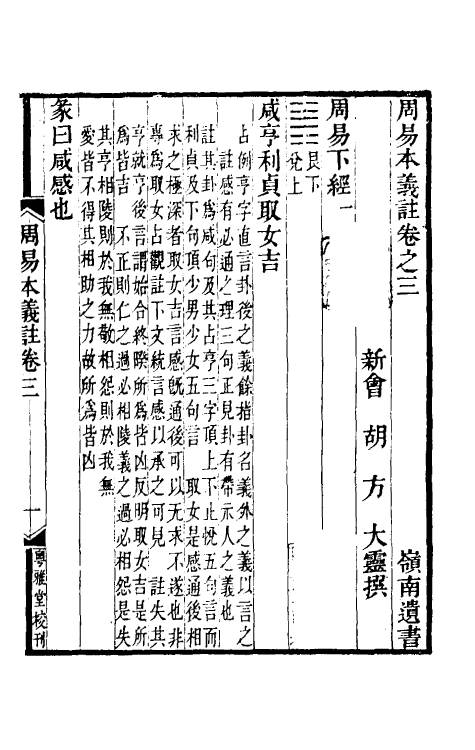 周易本義註卷之三　嶺南遺書
新會　胡　方　大靈撰
周易下經一
䷞艮下兌上
咸亨利貞取女吉
占例亨字直言卦後之義餘指卦名義外之義以言之
註感有必通之理三句正見卦有帶示人之義也
註其卦爲咸句及其占亨三字頂上下止悅五句言而
利貞及下句頂少男少女五句言　取女是感通後相
求之極深者取女吉言感旣通後可以无求不遂也非
專爲取女占觀註下文統言感以承之可見　註失其
亨就亨後言謂始合終暌所爲皆凶反明取女吉是所
爲皆吉　不正則仁之過必相陵義之過必相怨是失
其亨相陵則於我無敬相怨則於我無
愛皆不得其相助之力故所爲皆凶
彖曰咸感也
周易本義註卷三　一　粤雅堂校刊